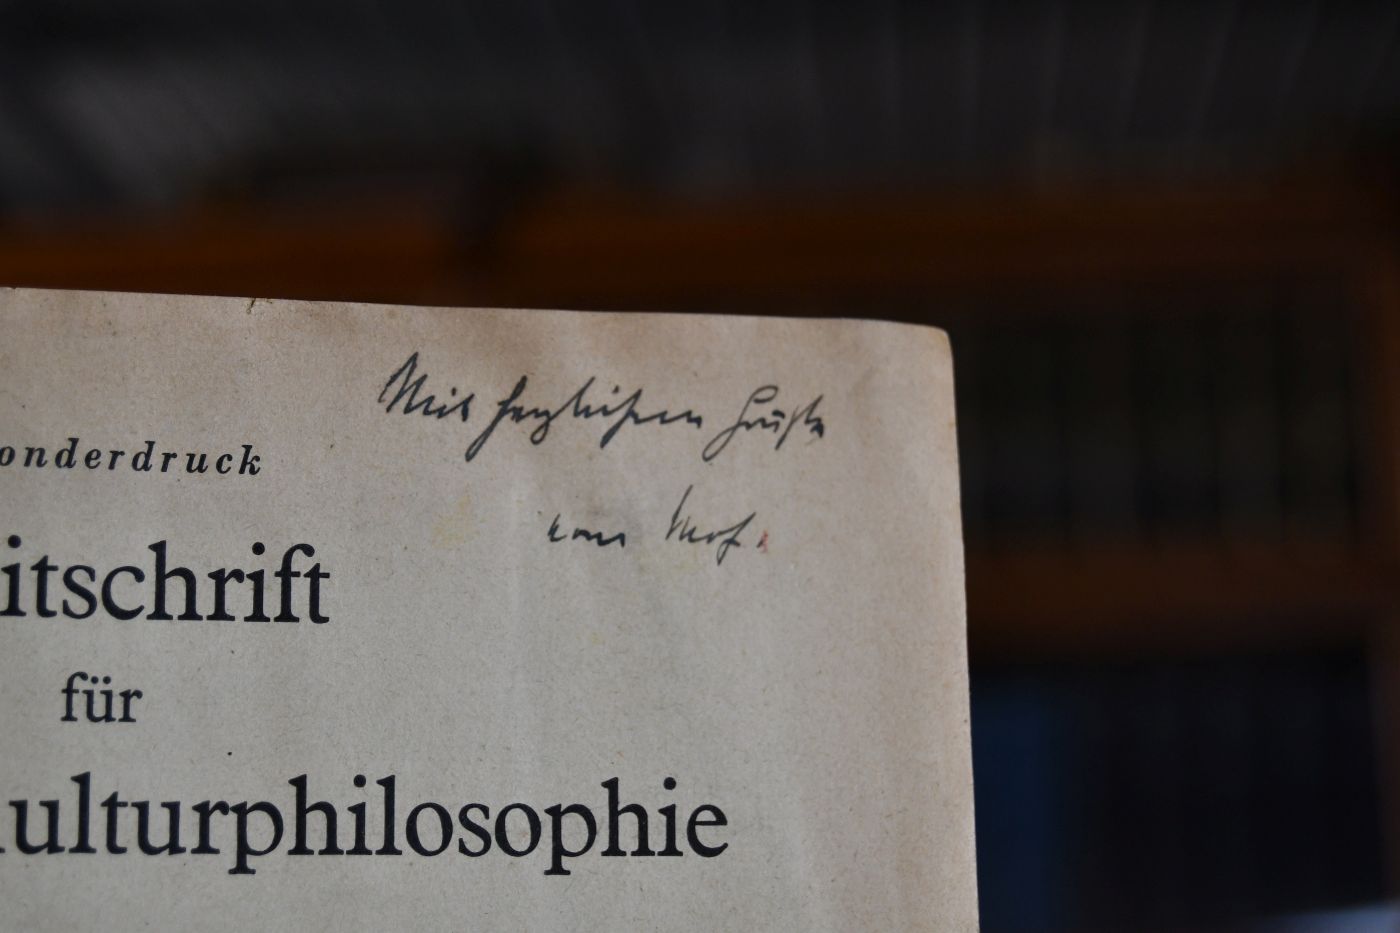 Mit herzlichen Grüßen
vom Verf.
onderdruck
itschrift
für
ulturphilosophie